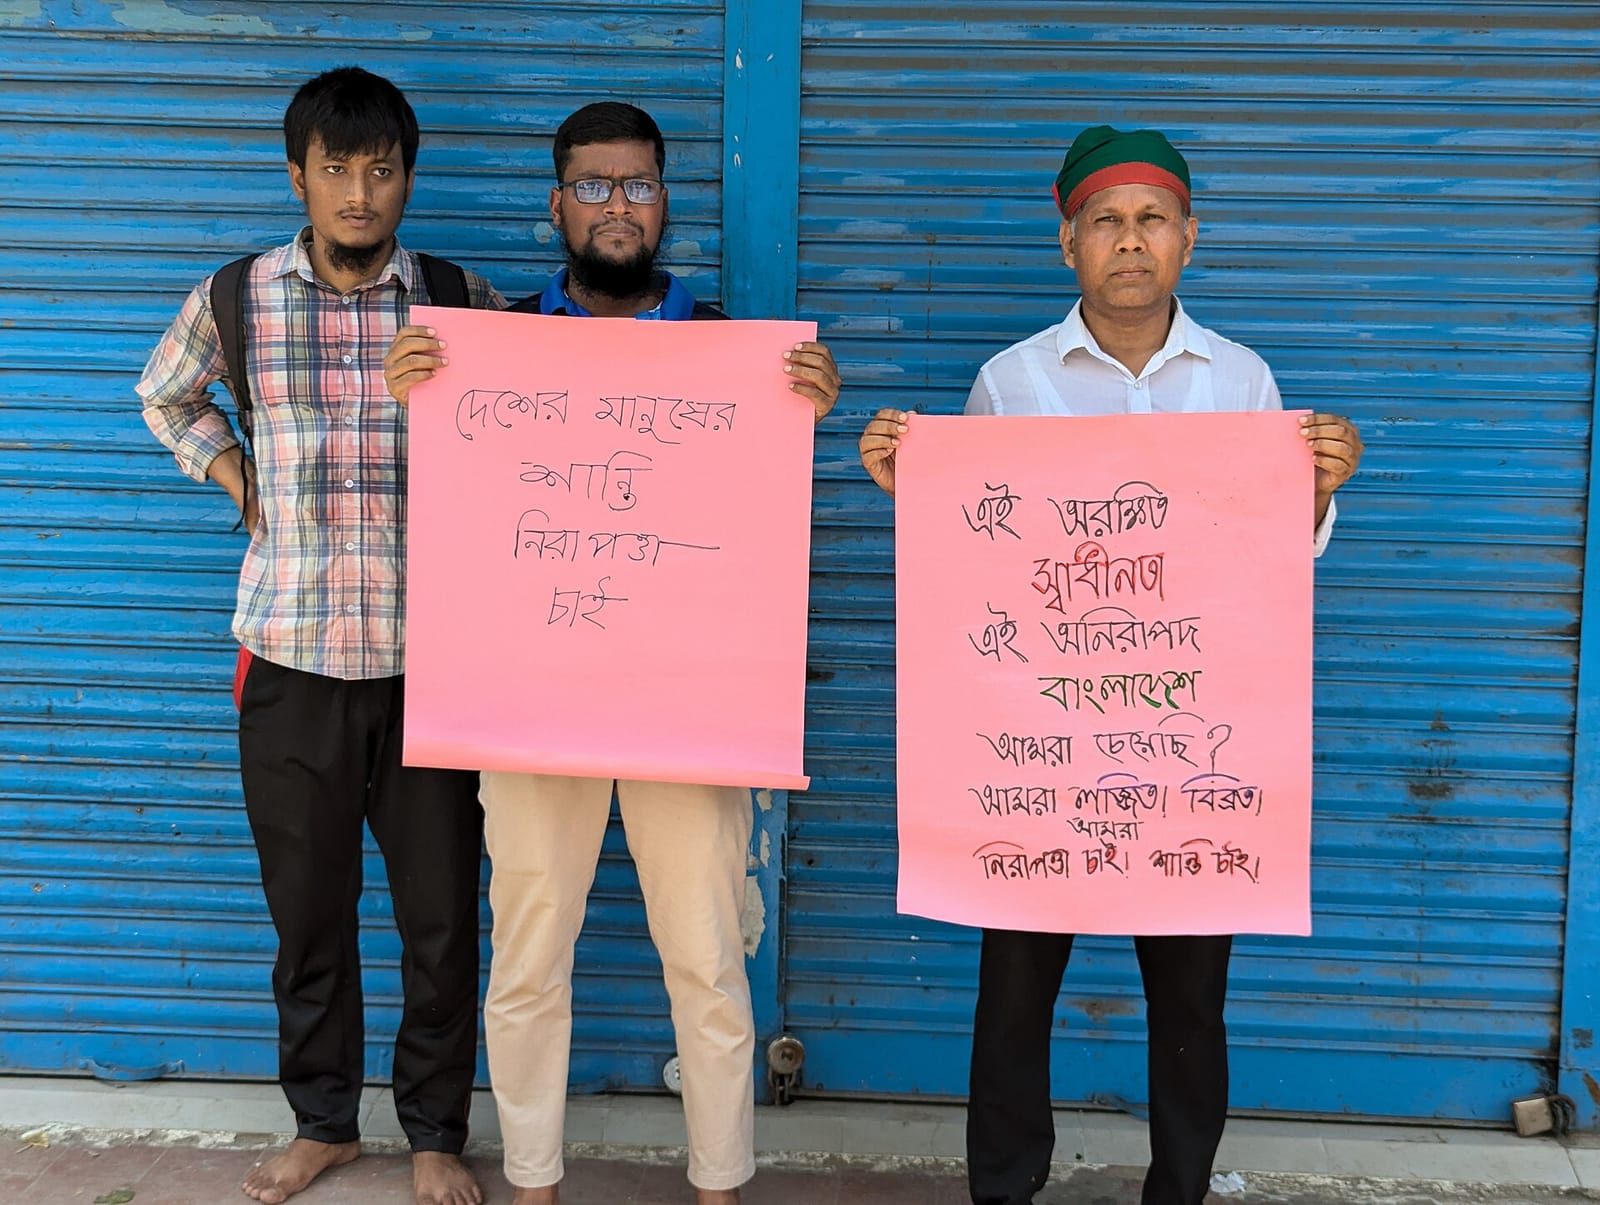 দেশের মানুষের
শান্তি
নিরাপত্তা
চাই
এই অরক্ষিত
স্বাধীনতা
এই অনিরাপদ
বাংলাদেশ
আমরা চেয়েছি?
আমরা লজ্জিত। বিব্রত।
আমরা
নিরাপত্তা চাই। শান্তি চাই।